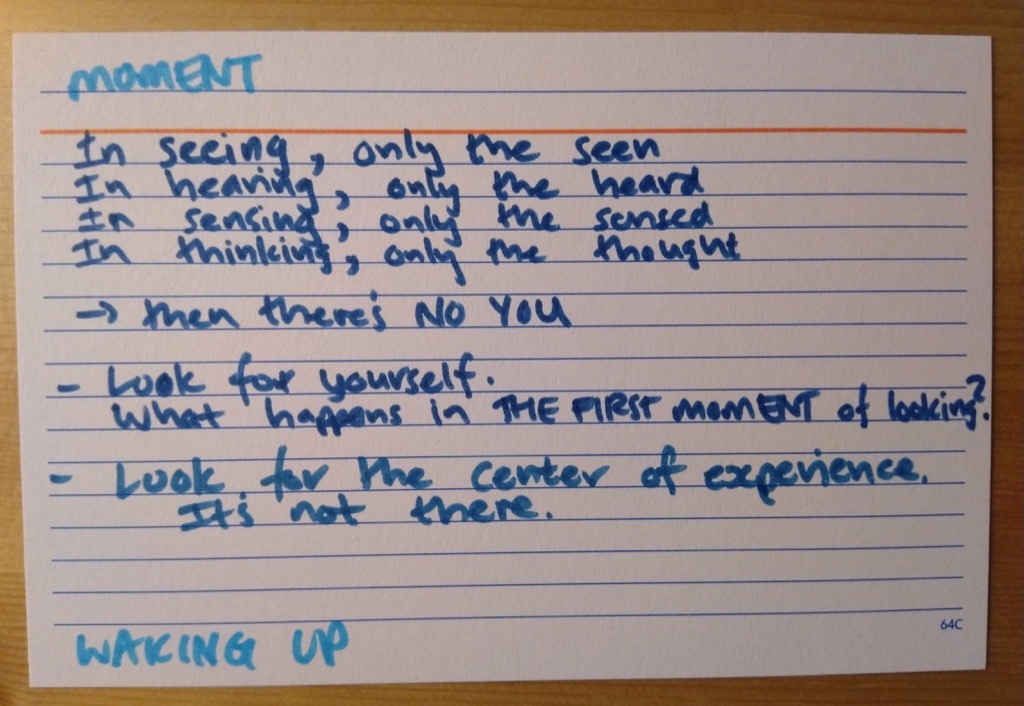 MOMENT
In seeing, only the seen
In hearing, only the heard
In sensing, only the sensed
In thinking, only the thought
→ then there's NO YOU
- Look for yourself.
What happens in THE FIRST MOMENT of looking?.
- Look for the center of experience.
It's not there.
64C
WAKING UP